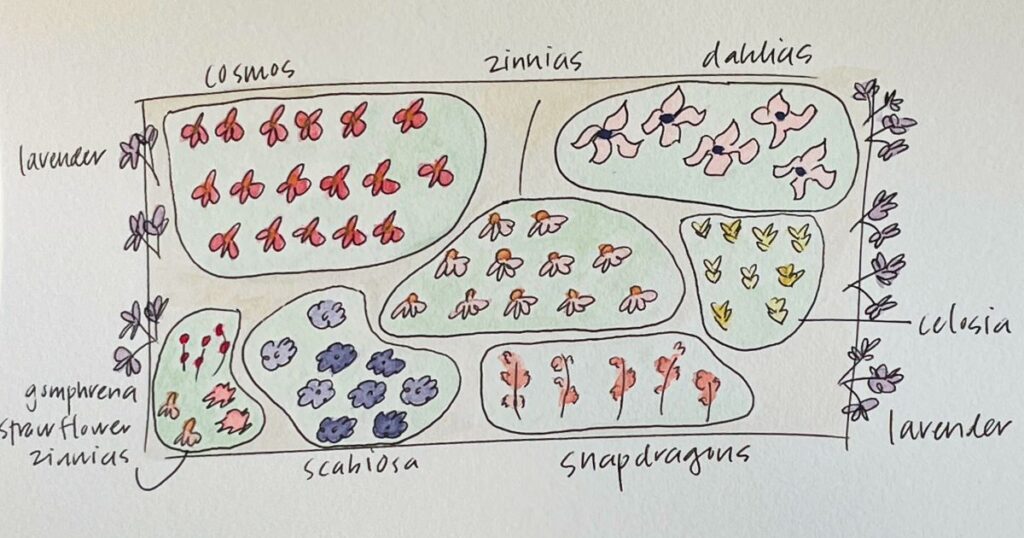 cosmos
zinnias
dahlias
lavender
celosia
gomphrena
strawflower
zinnias
lavender
scabiosa
snapdragons